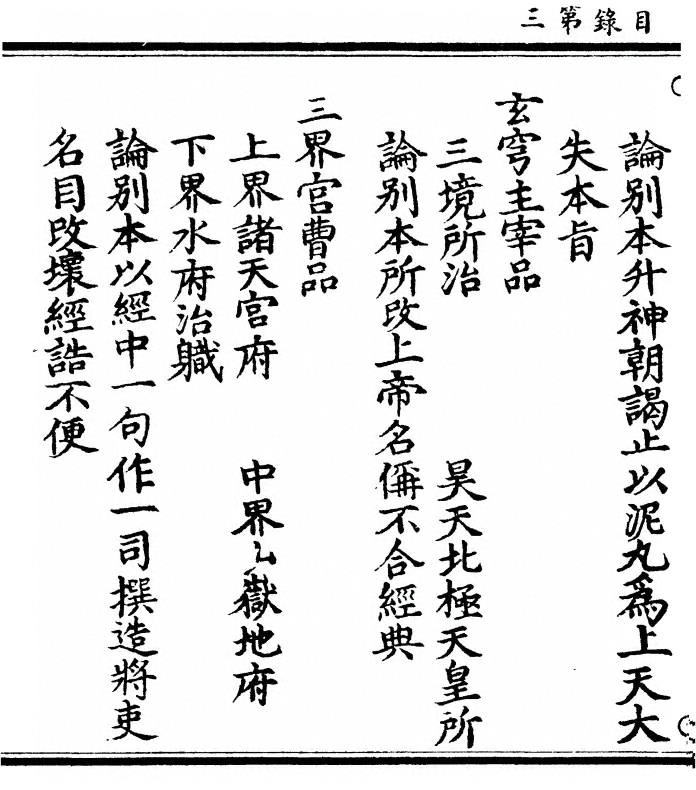 目錄第三
論別本升神朝謁止以泥丸爲上天大
失本旨
玄穹主宰品
三境所治　昊天北極天皇所
論別本所改上帝名稱不合經典
三界宮曹品
上界諸天宮府　中界嶽地府
下界水府治軄
論別本以經中一句作一司撰造將吏
名目改壞經誥不便